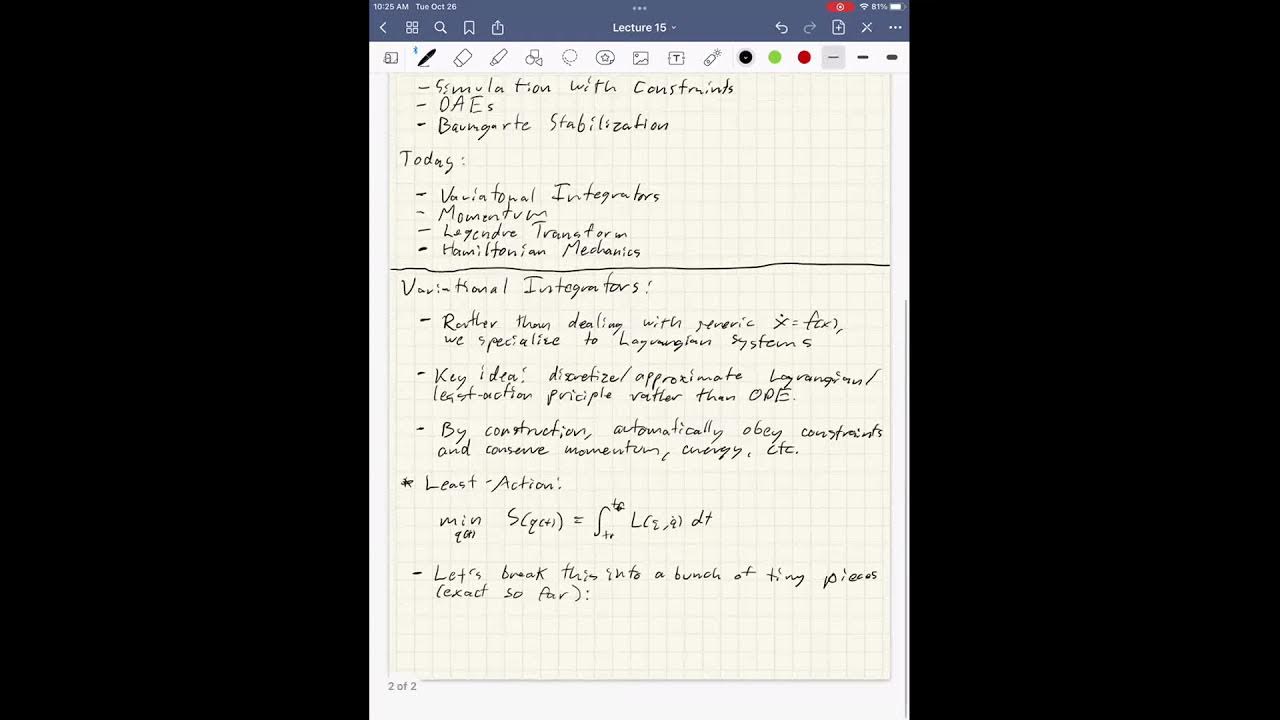 10:25 AM Tue Oct 26
81%
Lecture 15
- Simulation with Constraints
- DAEs
- Baumgarte Stabilization
Today:
- Variatonal Integrators
- Momentum
- Legendre Transform
- Hamiltonian Mechanics
Variational Integrators:
- Rather than dealing with generic ẋ = f(x),
we specialize to Lagrangian Systems
- Key idea: discretize/approximate Lagrangian/
least-action priciple rather than ODE.
- By construction, automatically obey constraints
and conserve momentum, energy, etc.
* Least-Action:
min q(t) S(q(t)) = ∫ t₀ t_f L(q, q̇) dt
- Let's break this into a bunch of tiny pieces
(exact so far):
2 of 2